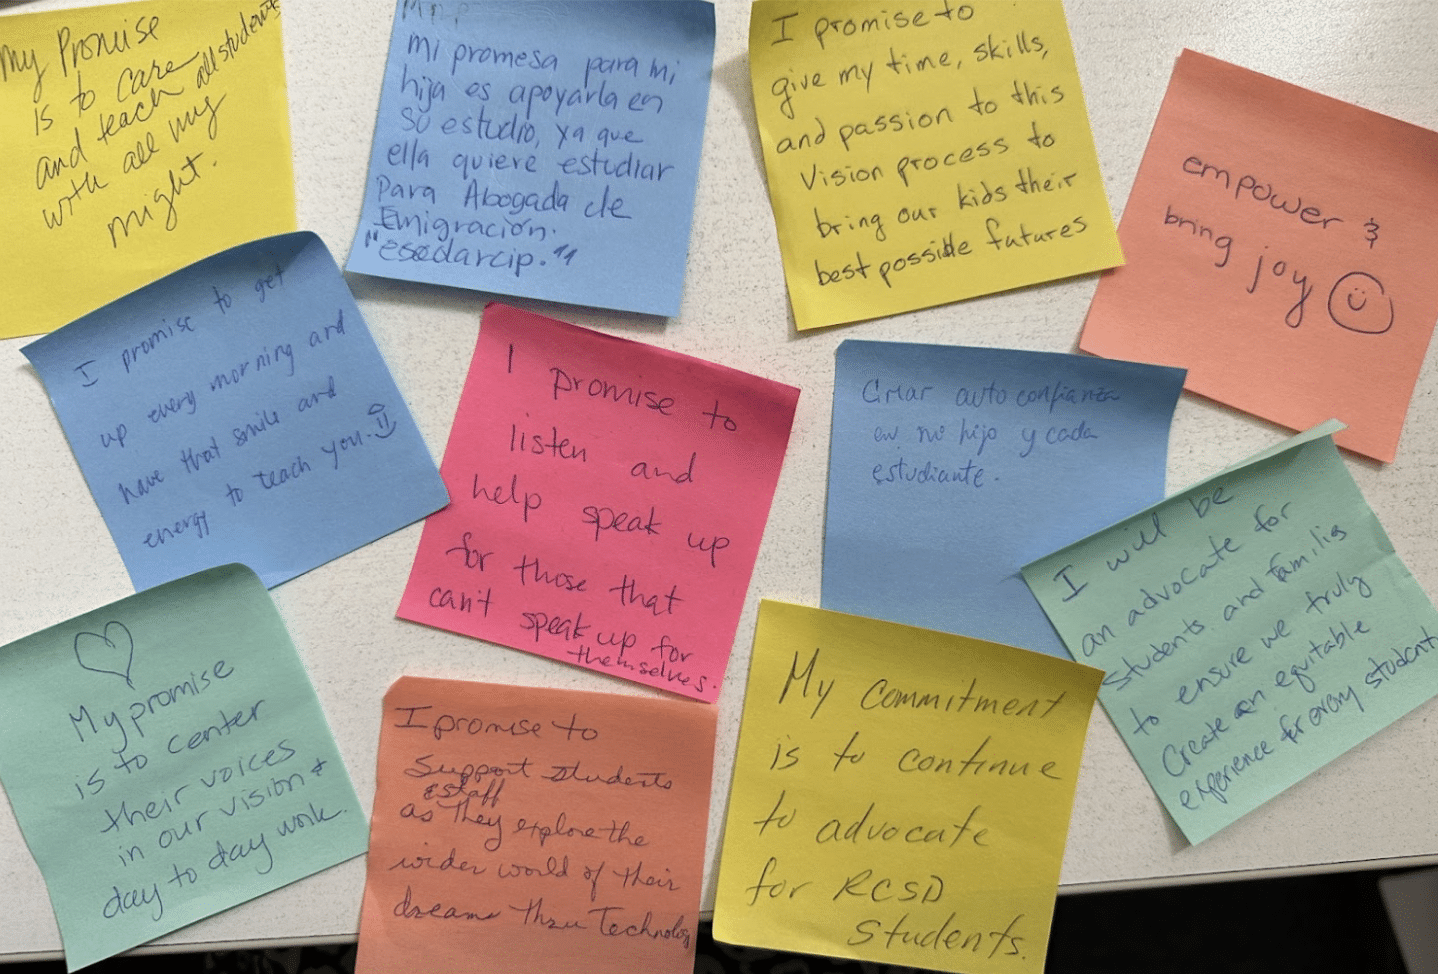 My Promise
is to care
and teach all students
with all my
might.
mi promesa para mi
hija es apoyarla en
su estudio, ya que
ella quiere estudiar
Para Abogada de
Emigración.
I promise to
give my time, skills,
and passion to this
vision process to
bring our kids their
best possible futures
empower &
bring joy
I promise to get
up every morning and
have that smile and
energy to teach you.
I promise to
listen and
help speak up
for those that
can't speak up for
themselves.
Criar auto confianza
en mi hijo y cada
estudiante.
I will be
an advocate for
students and families
to ensure we truly
Create an equitable
experience for every student
My promise
is to center
their voices
in our vision &
day to day work.
I promise to
Support students
& staff
as they explore the
wider world of their
dreams thru Technology
My commitment
is to continue
to advocate
for RCSD
Students.